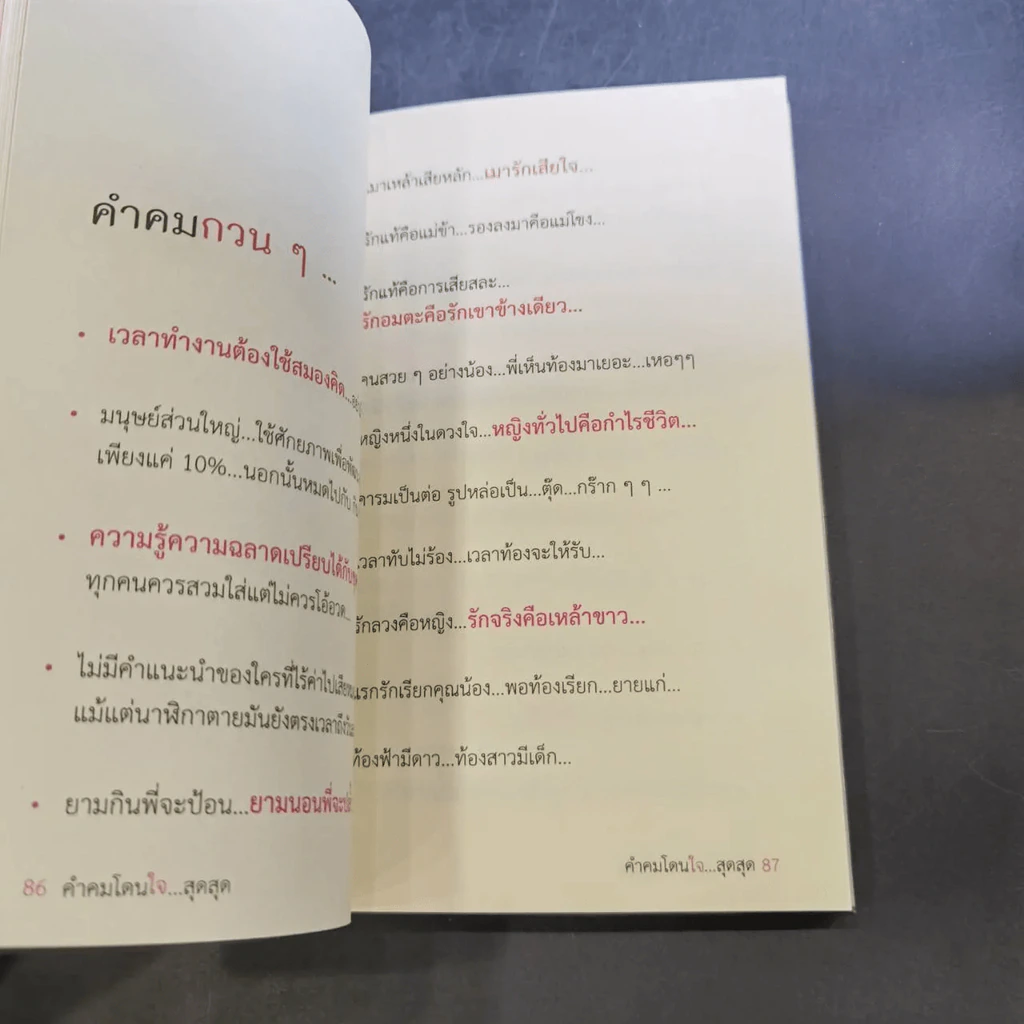 คำคมกวน ๆ ...
• เวลาทำงานต้องใช้สมองคิด...
• มนุษย์ส่วนใหญ่...ใช้ศักยภาพเพื่อ
เพียงแค่ 10%...นอกนั้นหมดไปกับ
• ความรู้ความฉลาดเปรียบได้กับ
ทุกคนควรสวมใส่แต่ไม่ควรโอ้อวด...
• ไม่มีคำแนะนำของใครที่ไร้ค่าไปเสีย
แม้แต่นาฬิกาตายมันยังตรงเวลาถึง
• ยามกินพี่จะป้อน...ยามนอนพี่จะ
86 คำคมโดนใจ...สุดสุด
เมาเหล้าเสียหลัก...เมารักเสียใจ...
รักแท้คือแม่ข้า...รองลงมาคือแม่โขง...
รักแท้คือการเสียสละ...
รักอมตะคือรักเขาข้างเดียว...
คนสวย ๆ อย่างน้อง...พี่เห็นท้องมาเยอะ...เหอๆๆ
หญิงหนึ่งในดวงใจ...หญิงทั่วไปคือกำไรชีวิต...
คารมเป็นต่อ รูปหล่อเป็น...ตุ๊ด...กร๊าก ๆ ๆ ...
เวลาทับไม่ร้อง...เวลาท้องจะให้รับ...
รักลวงคือหญิง...รักจริงคือเหล้าขาว...
แรกรักเรียกคุณน้อง...พอท้องเรียก...ยายแก่...
ท้องฟ้ามีดาว...ท้องสาวมีเด็ก...
คำคมโดนใจ...สุดสุด 87